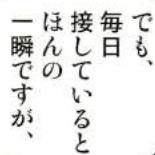 でも、
毎日
接していると
ほんの
一瞬ですが、